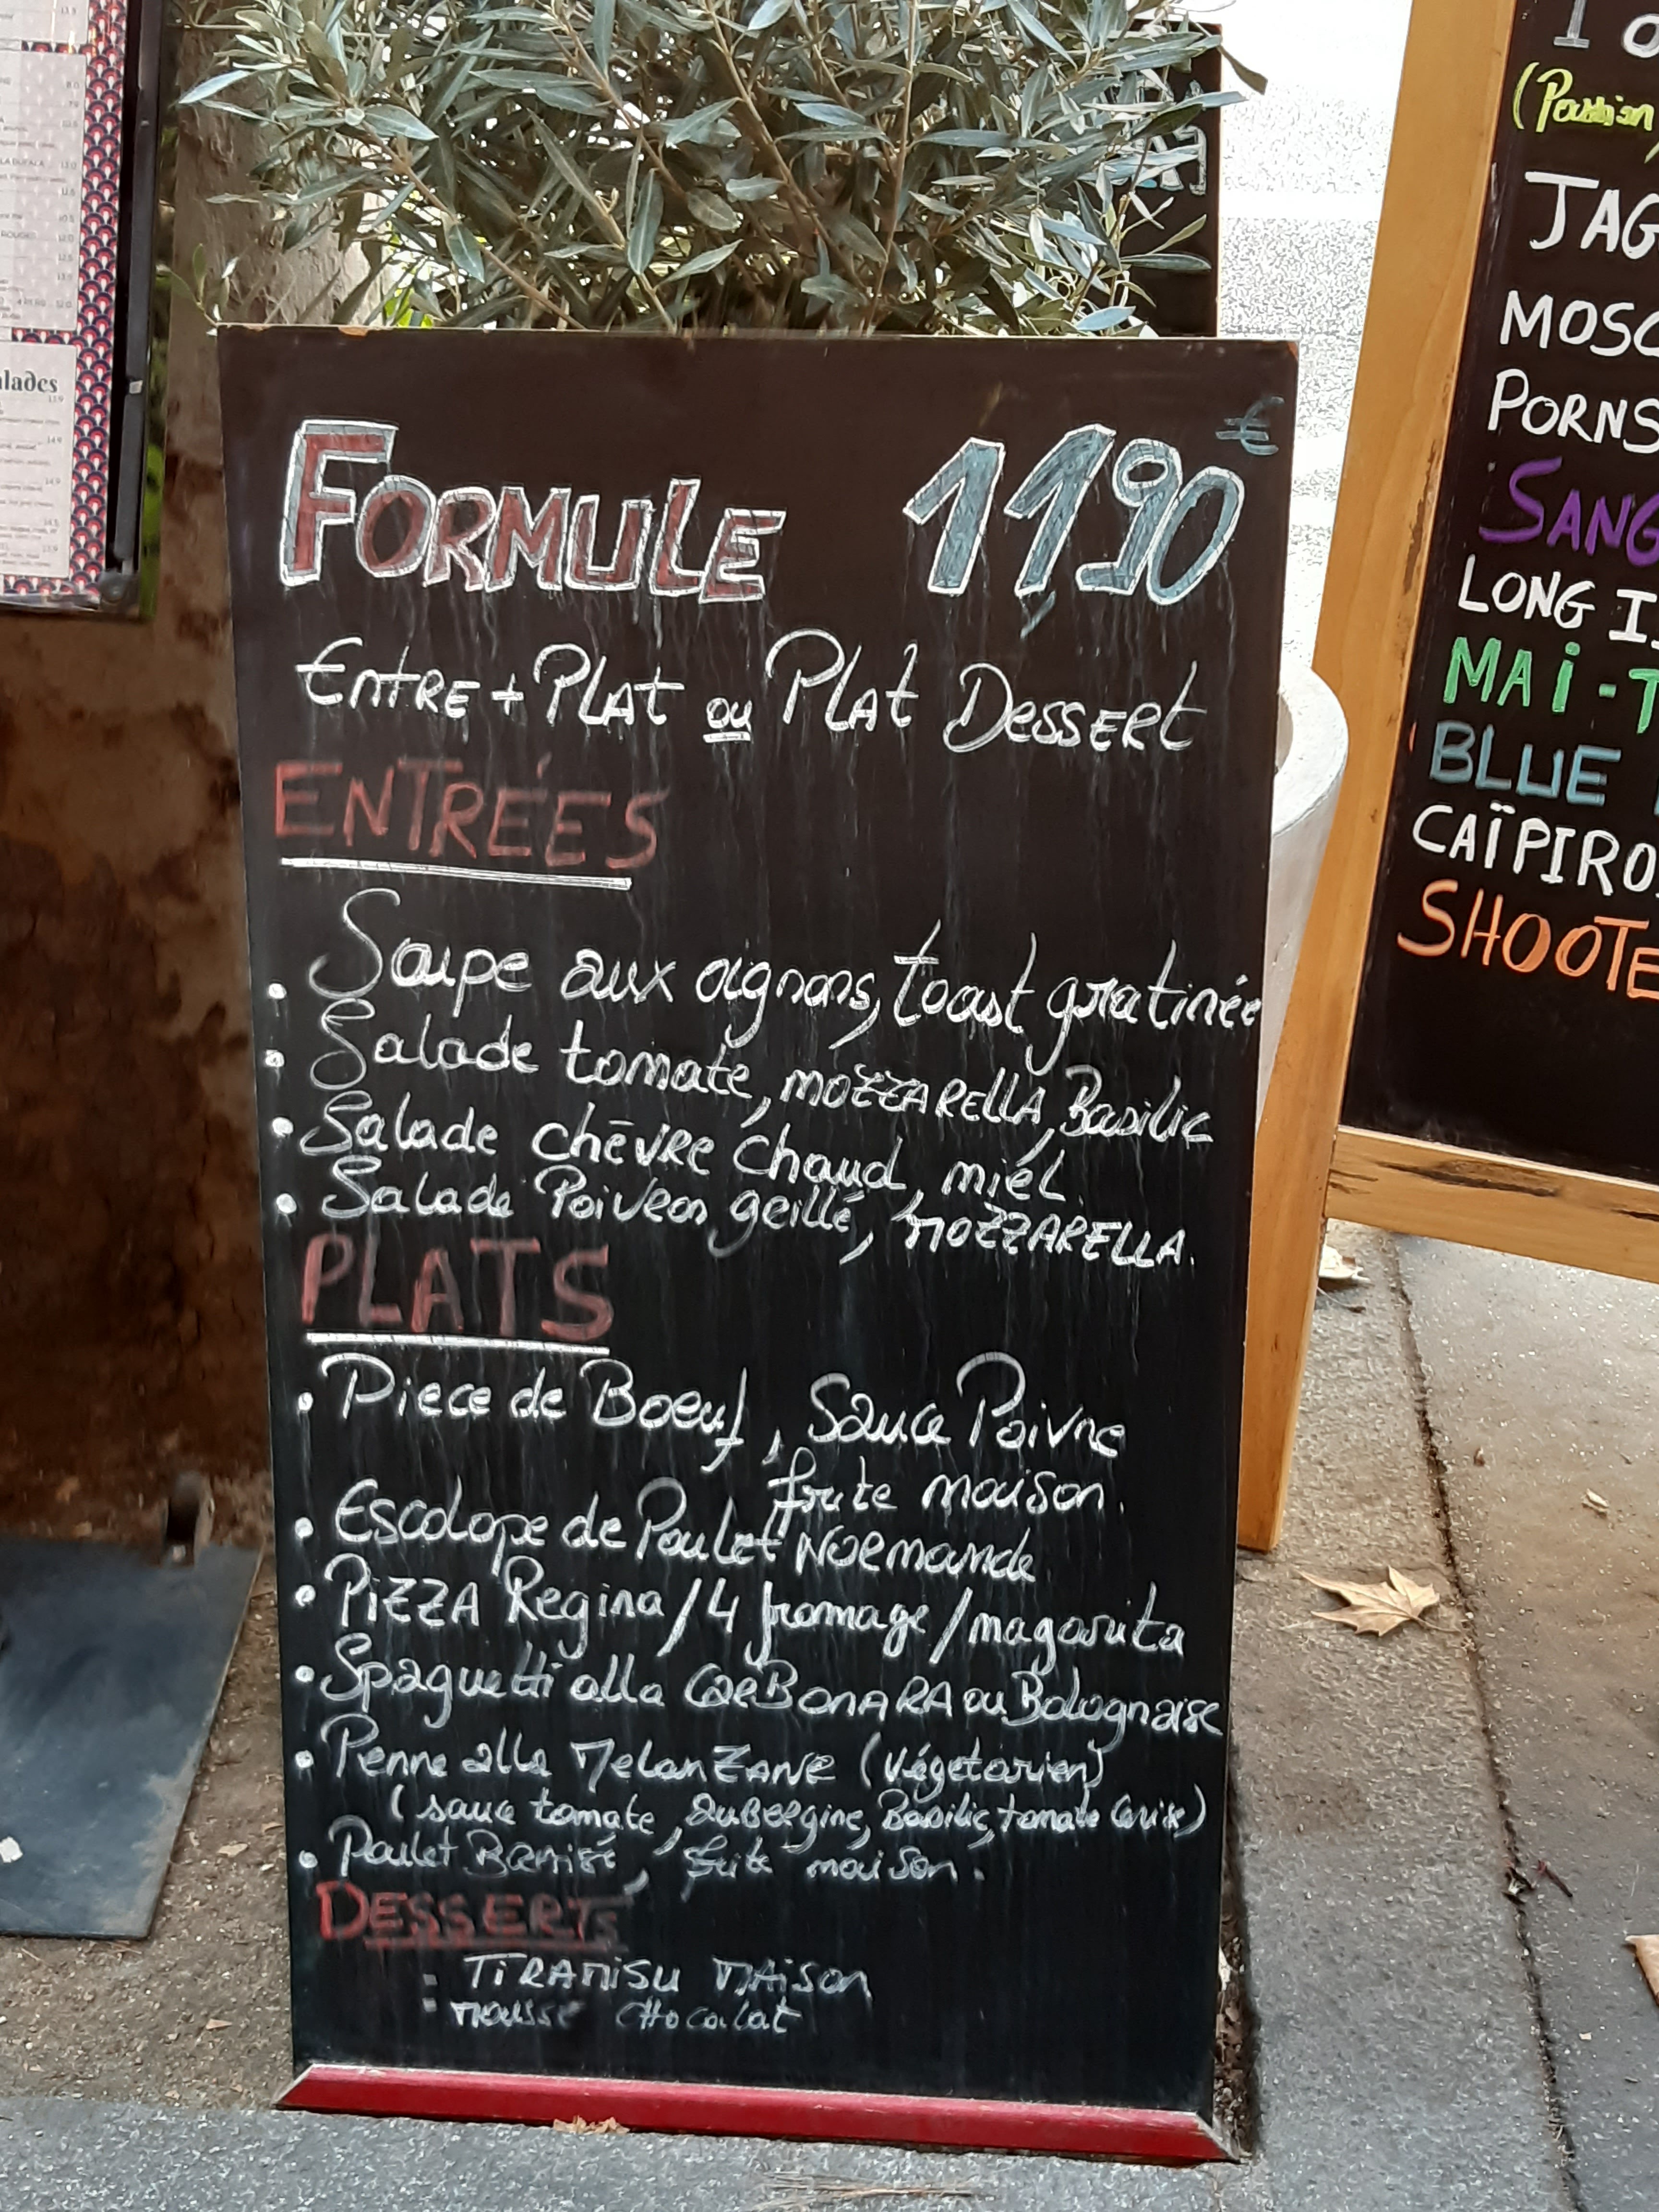 FORMULE 11,90 €
ENTRE + PLAT ou PLAT DESSERT
ENTRÉES
• Soupe aux oignons, toast gratinée
• Salade tomate, MOZZARELLA, Basilic
• Salade chèvre chaud, miel.
• Salade Poivron grillé, MOZZARELLA.
PLATS
• Piece de Boeuf, Sauce Poivre
frite maison.
• Escalope de Poulet NORmande
• PiZZA Regina / 4 fromage / magarita
• Spaguetti alla CARBONARA ou Bolognaise
• Penne alla MelanZANE (végétarien)
(sauce tomate, AuBergine, Basilic, tomate Cerise)
• Poulet
, frite maison.
DESSERTS
• TIRAMISU MAison
• mousse CHocolat
lades
(Passion,
JAG
MOSC
PORNS
SANG
LONG IS
MAÏ-T
BLUE
CAÏPIRO
SHOOTE